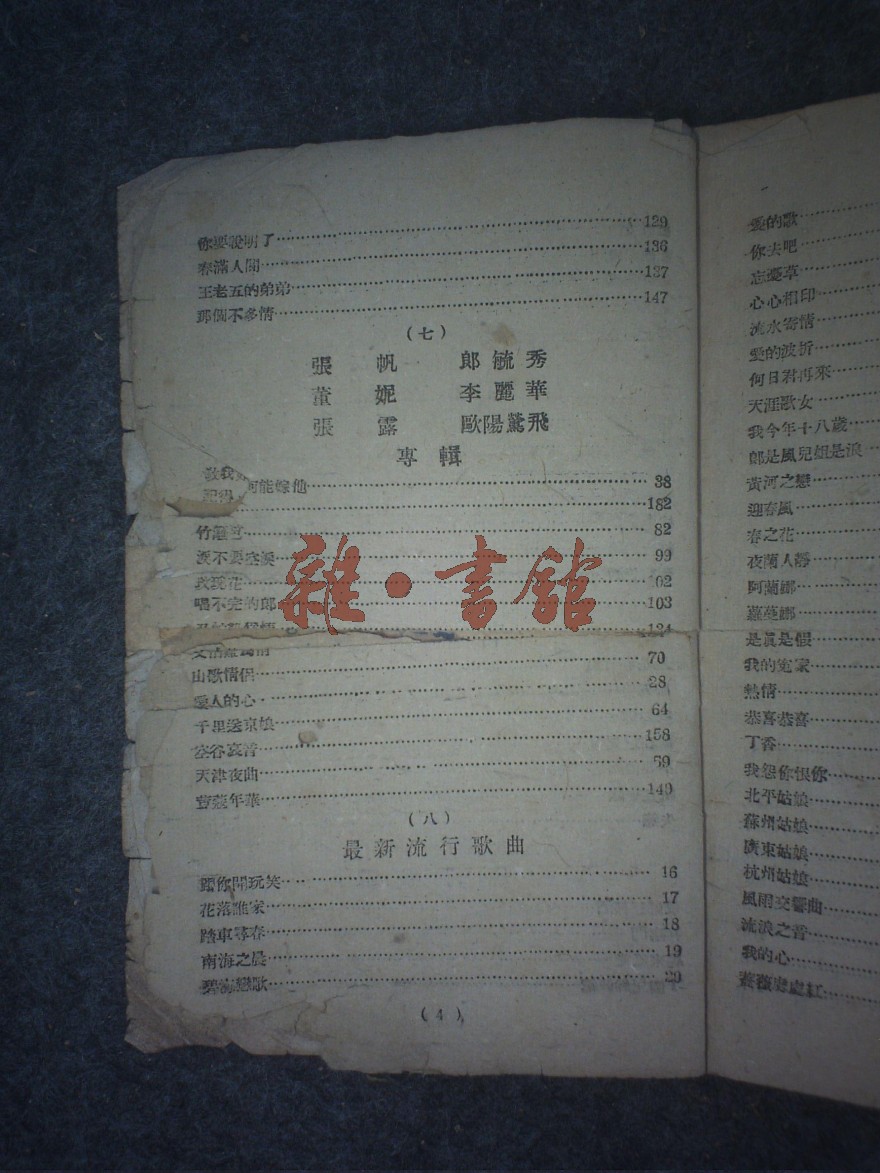 你要說明了 129
春滿人間 136
王老五的弟弟 137
那個不多情 147
(七)
張帆 郎毓秀
董妮 李麗華
張露 歐陽鶯飛
專輯
教我 何能嫁他 38
182
竹 82
淚 99
玫瑰花 62
唱不完的郎 103
124
70
山歌情侶 28
愛人的心 64
千里送京娘
空谷哀音 158
天津夜曲 59
荳蔻年華 149
(八)
最新流行歌曲
跟你開玩笑 16
花落誰家 17
踏車尋春 18
南海之晨 19
碧海戀歌 20
(4)
雜·書館
愛的歌
你去吧
忘憂草
心心相印
流水寄情
愛的波折
何日君再來
天涯歌女
我今年十八歲
郎是風兒姐是浪
黃河之戀
迎春風
春之花
夜闌人靜
阿蘭娜
蘿蔓娜
是眞是假
我的寃家
熱情
恭喜恭喜
丁香
我怨你恨你
北平姑娘
蘇州姑娘
廣東姑娘
杭州姑娘
風雨交響曲
流浪之音
我的心
薔薇處處紅